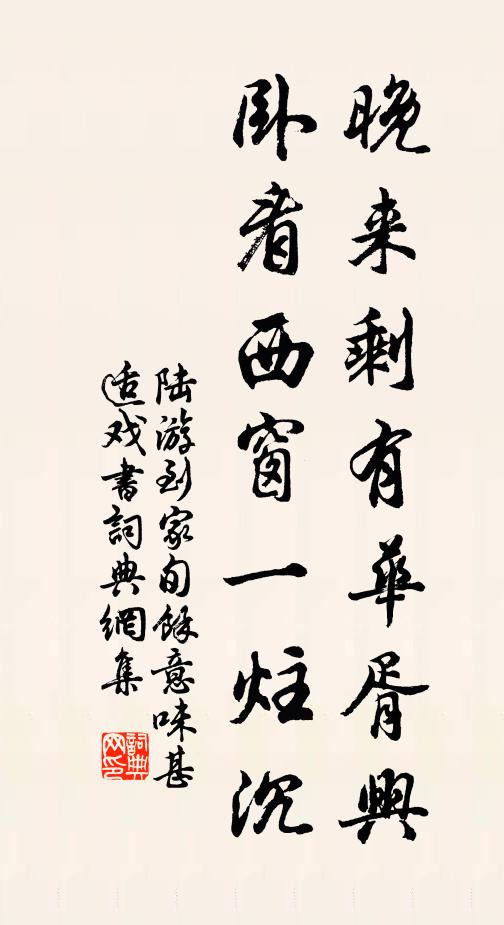 晚来剩有華胥興
卧看西窗一炷沉
陆游到家旬餘意味甚
适戏書詞典網集
詞典网印